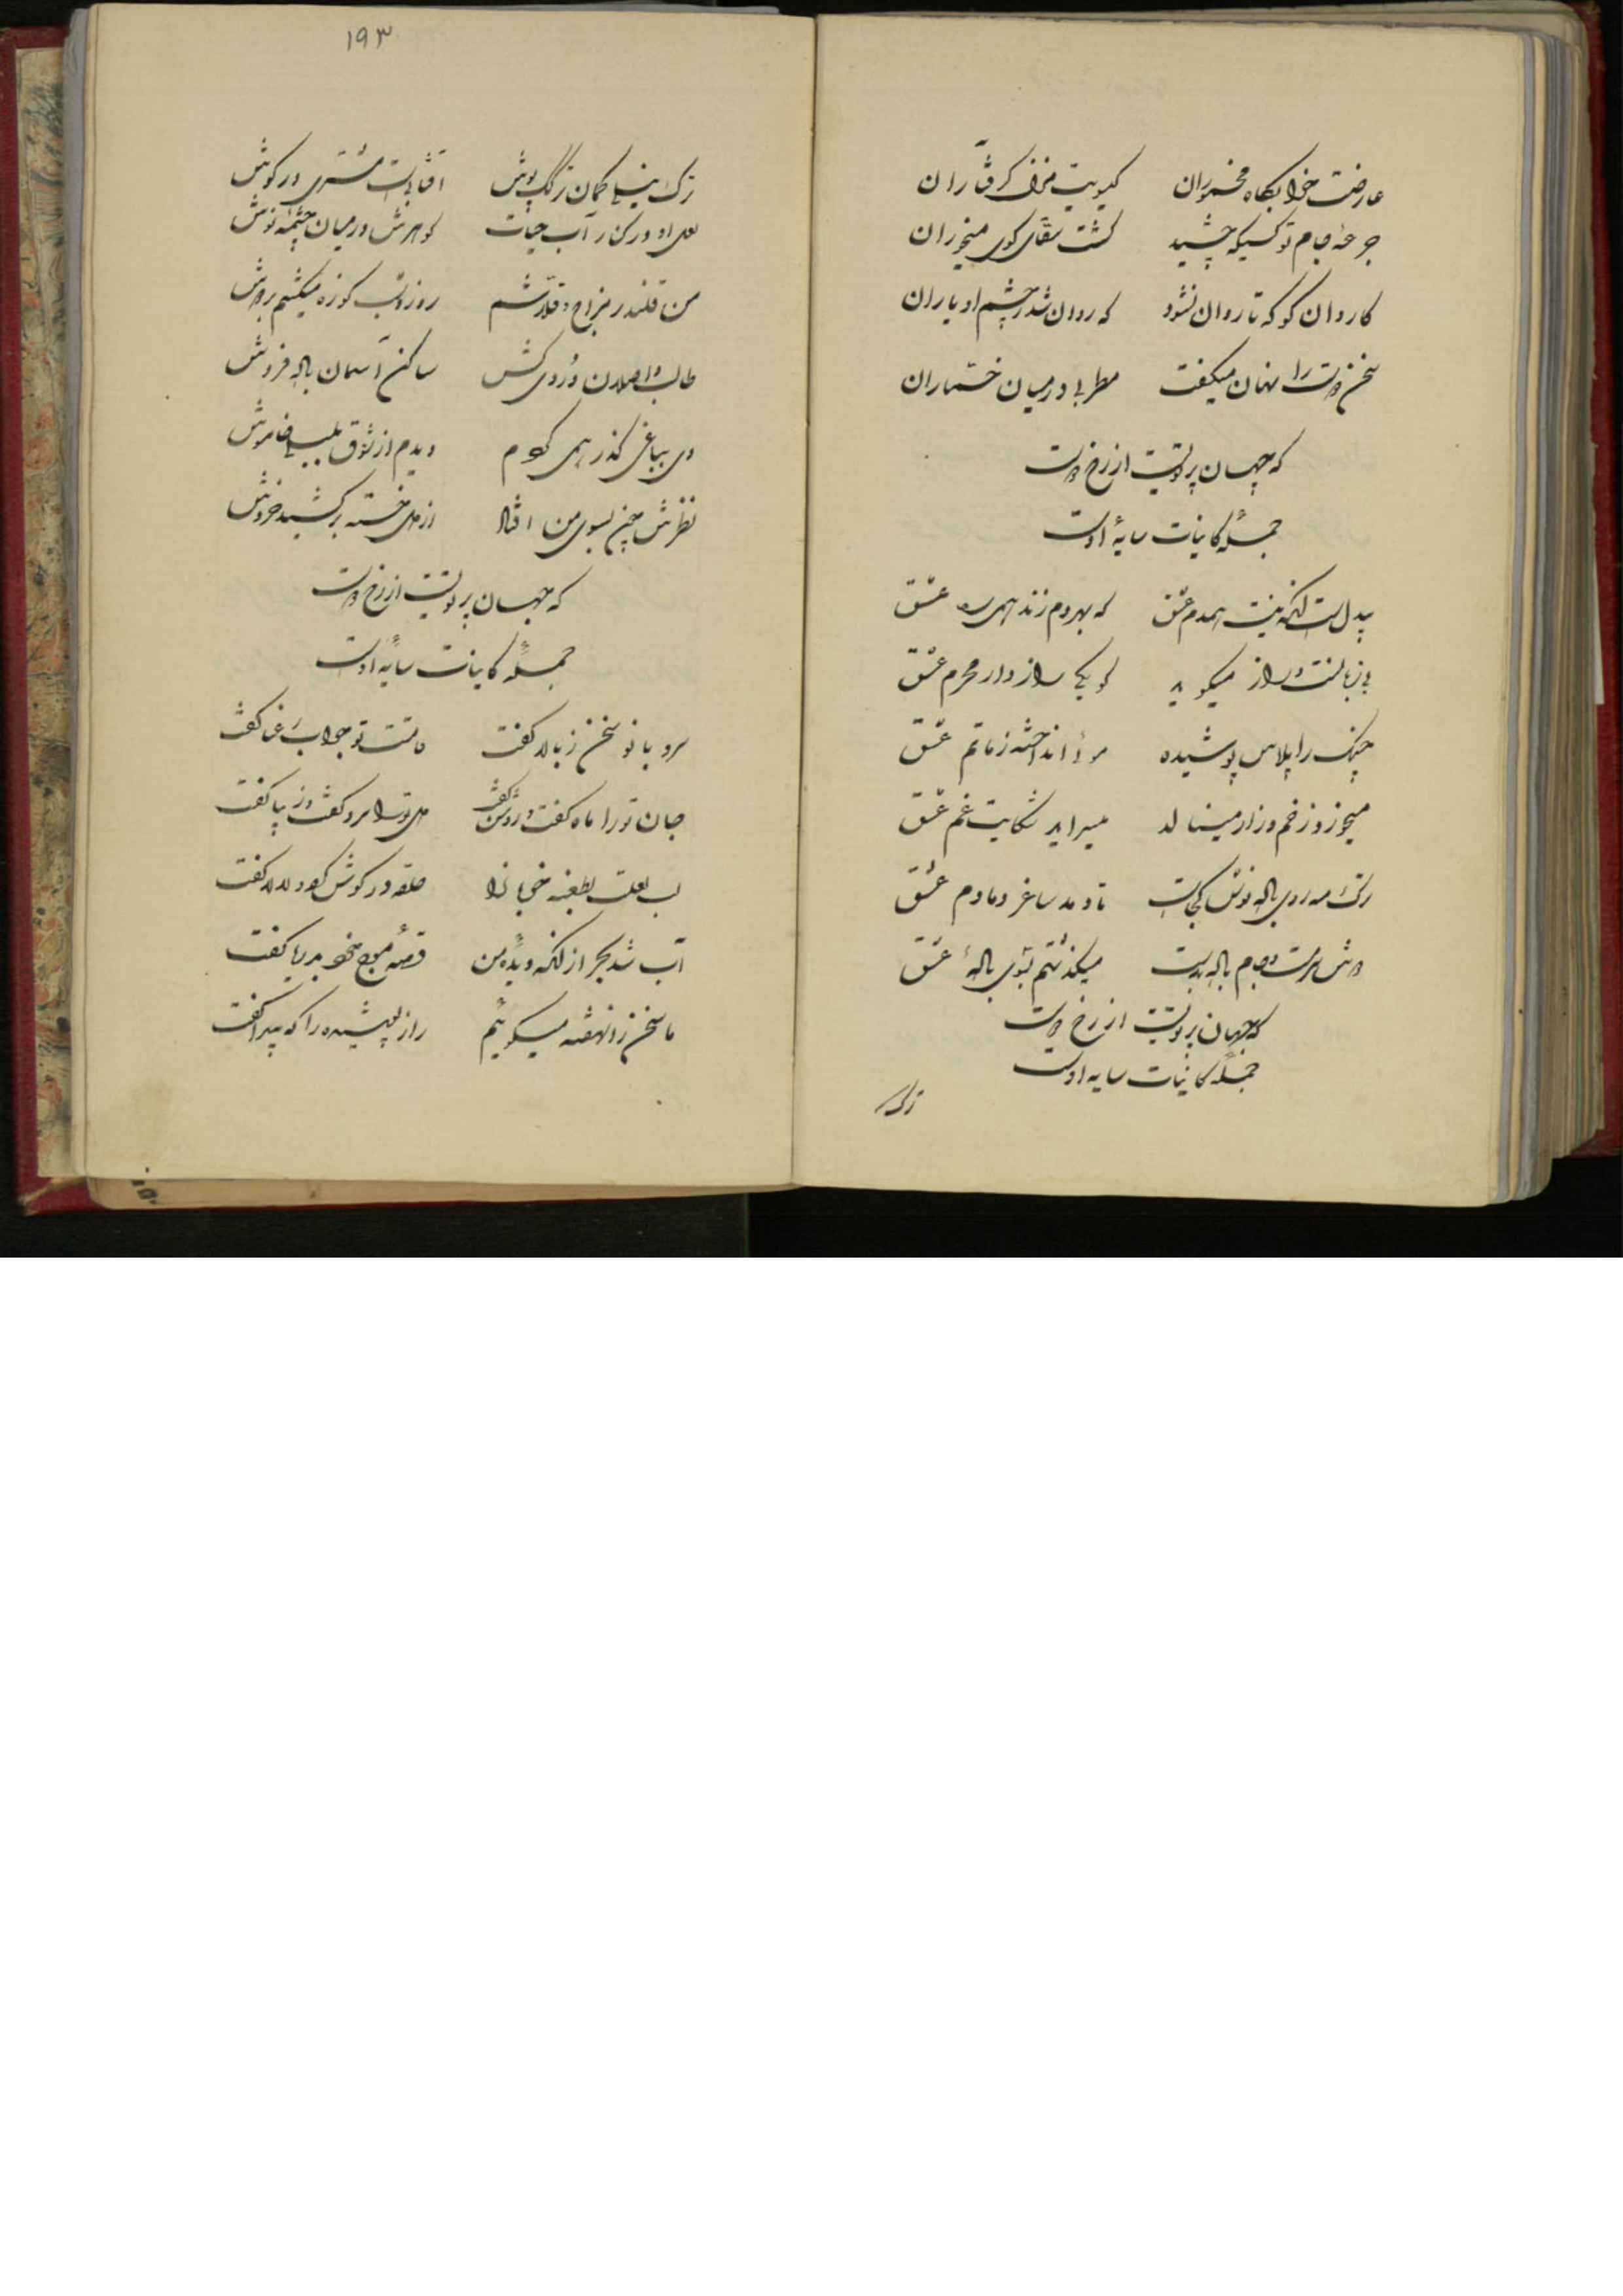 عارضت خوابگاه مخموران گیسویت منزل گرفتاران
جرعهٔ جام تو کسیکه چشید گشت سقای کوی میخوران
کاروان گو که تا روان نشود که روان شد ز چشم او باران
سخن دوست را نهان میگفت مطربی در میان خمّاران
که جهان پرتویست از رخ دوست
جملهٔ کاینات سایهٔ اوست
بیدل است آنکه نیست همدم عشق که بهر دم زند همی دم عشق
بی زبانست و راز میگوید کو یکی رازدار محرم عشق
چنگ را پلاس پوشیده مو انداخته ز ماتم عشق
میخورد زخم و زار مینالد میسراید شکایت غم عشق
ترک مه روی باده نوش کجاست تا دهد ساغر دمادم عشق
دوش سرمست و جام باده بدست میگذشتم بسوی بادهٔ عشق
که جهان پرتویست از رخ دوست
جملهٔ کاینات سایه اوست
ترک
۱۹۳
ترک یغما کمان ترکش پوش آفتابست مشتری در گوش
لعل او در کنار آب حیات گوهرش در میان چشمهٔ نوش
من قلندر مزاج و قلّاشم روز و شب کوزه میکشم بر دوش
طالب واصلان دُردی کش ساکن آستان باده فروش
دی بباغی گذر همی کردم دیدم از شوق بلبلی خاموش
نظرش چون بسوی من افتاد از دل خسته برکشید خروش
که جهان پرتویست از رخ دوست
جملهٔ کاینات سایهٔ اوست
سرو با تو سخن ز بالا گفت قامتت تو جواب رعنا گفت
جان تو را ماه گفت و روشن گفت دل تو را سرو گفت وز پا گفت
لب لعلت بطعنه خوبانرا حلقه در گوش کرد و لالا گفت
آب شد بحر از آنکه دیدهٔ من قصهٔ موج خود بدریا گفت
ما سخن زان نهفته میگوئیم راز پوشیده را که پیدا گفت